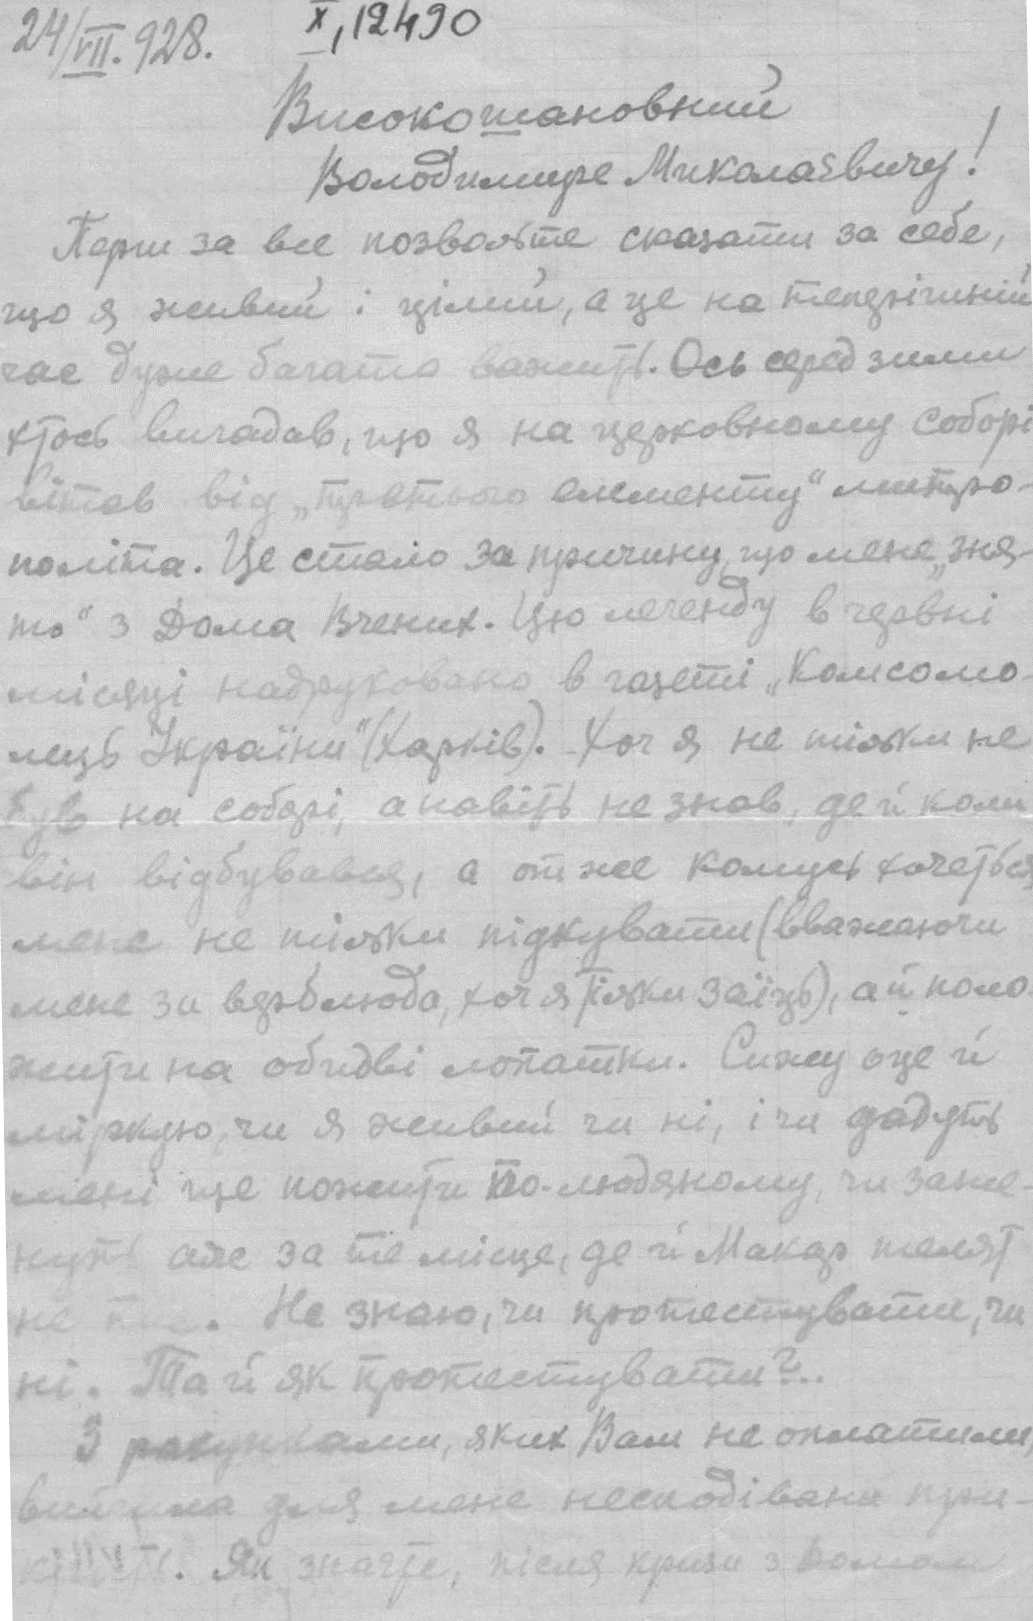 24/VII. 928.
X, 12490
Високошановний
Володимире Миколаєвичу!
Перш за все позвольте сказати за себе,
що я живий і цілий, а це на теперішній
час дуже багато важить. Ось серед зими
хтось вигадав, що я на церковному соборі
вітав від „третього елементу“ митро-
політа. Це стало за причину, що мене „зня-
то“ з Дома Вчених. Цю легенду в червні
місяці надруковано в газеті „Комсомо-
лець України“ (Харків). Хоч я не тільки не
був на соборі, а навіть не знав, де й коли
він відбувався, а от же комусь хочеться
мене не тільки підкувати (вважаючи
мене за верблюда, хоч я тільки заїць), а й поло-
жити на обидві лопатки. Сижу оце й
міркую, чи я живий чи ні, і чи дадуть
мені ще пожити по-людяному, чи заже-
нуть аж за те місце, де й Макар телят
не . Не знаю, чи протестувати, чи
ні. Та й як протестувати?..
З рахунками, яких Вам не оплатили,
вийшла для мене несподівана при-
. Як знаєте, після кризи з Домом